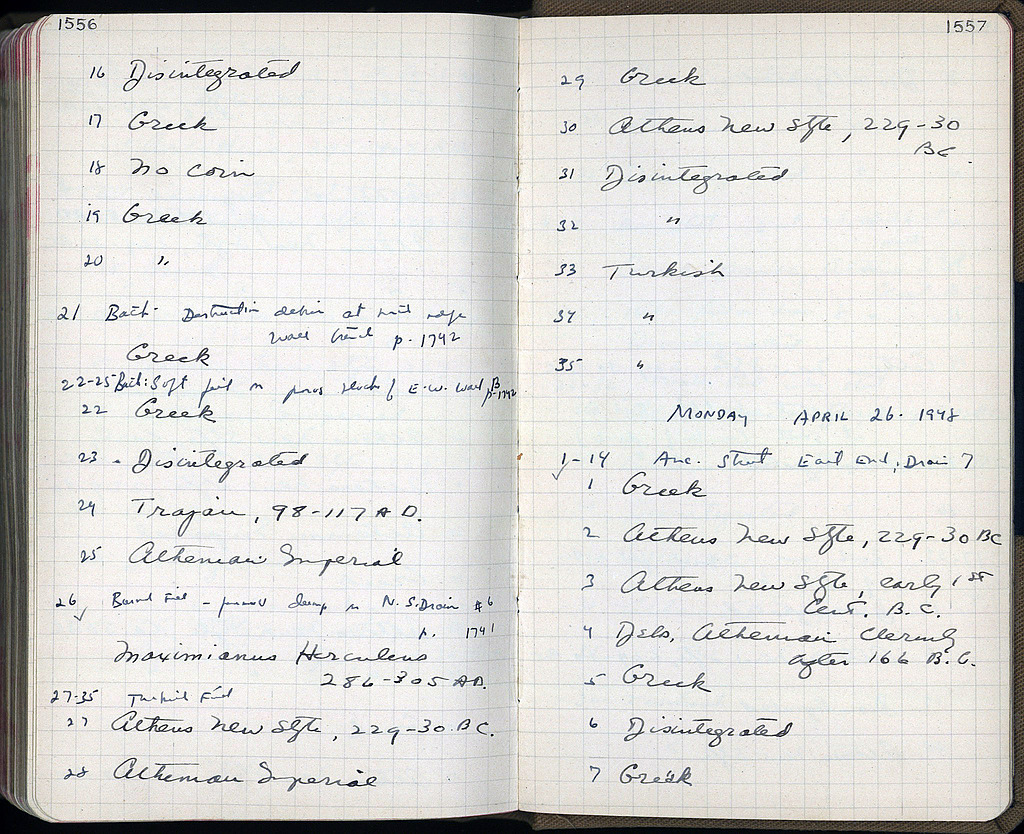 1556
16 Disintegrated
17 Greek
18 No coin
19 Greek
20 "
21 Destruction debris at
wall p. 1742
Greek
22-25 Soft fill in poros of E.W. Wall B p. 1742
22 Greek
23 - Disintegrated
24 Trajan, 98-117 A D.
25 Athenian Imperial
26 - in N.S. Drain #6
p. 1741
Maximianus Herculeus
286-305 AD.
27-35 Turkish Fill
27 Athens New Style, 229-30 BC.
28 Athenian Imperial
1557
29 Greek
30 Athens New Style, 229-30
BC.
31 Disintegrated
32 "
33 Turkish
34 "
35 "
MONDAY APRIL 26. 1948
1-14 Anc. Street East End, Drain 7
1 Greek
2 Athens New Style, 229-30 BC
3 Athens New Style, early 1st
Cent. B.C.
4 Delos, Athenian Cleruchy
after 166 B.C.
5 Greek
6 Disintegrated
7 Greek